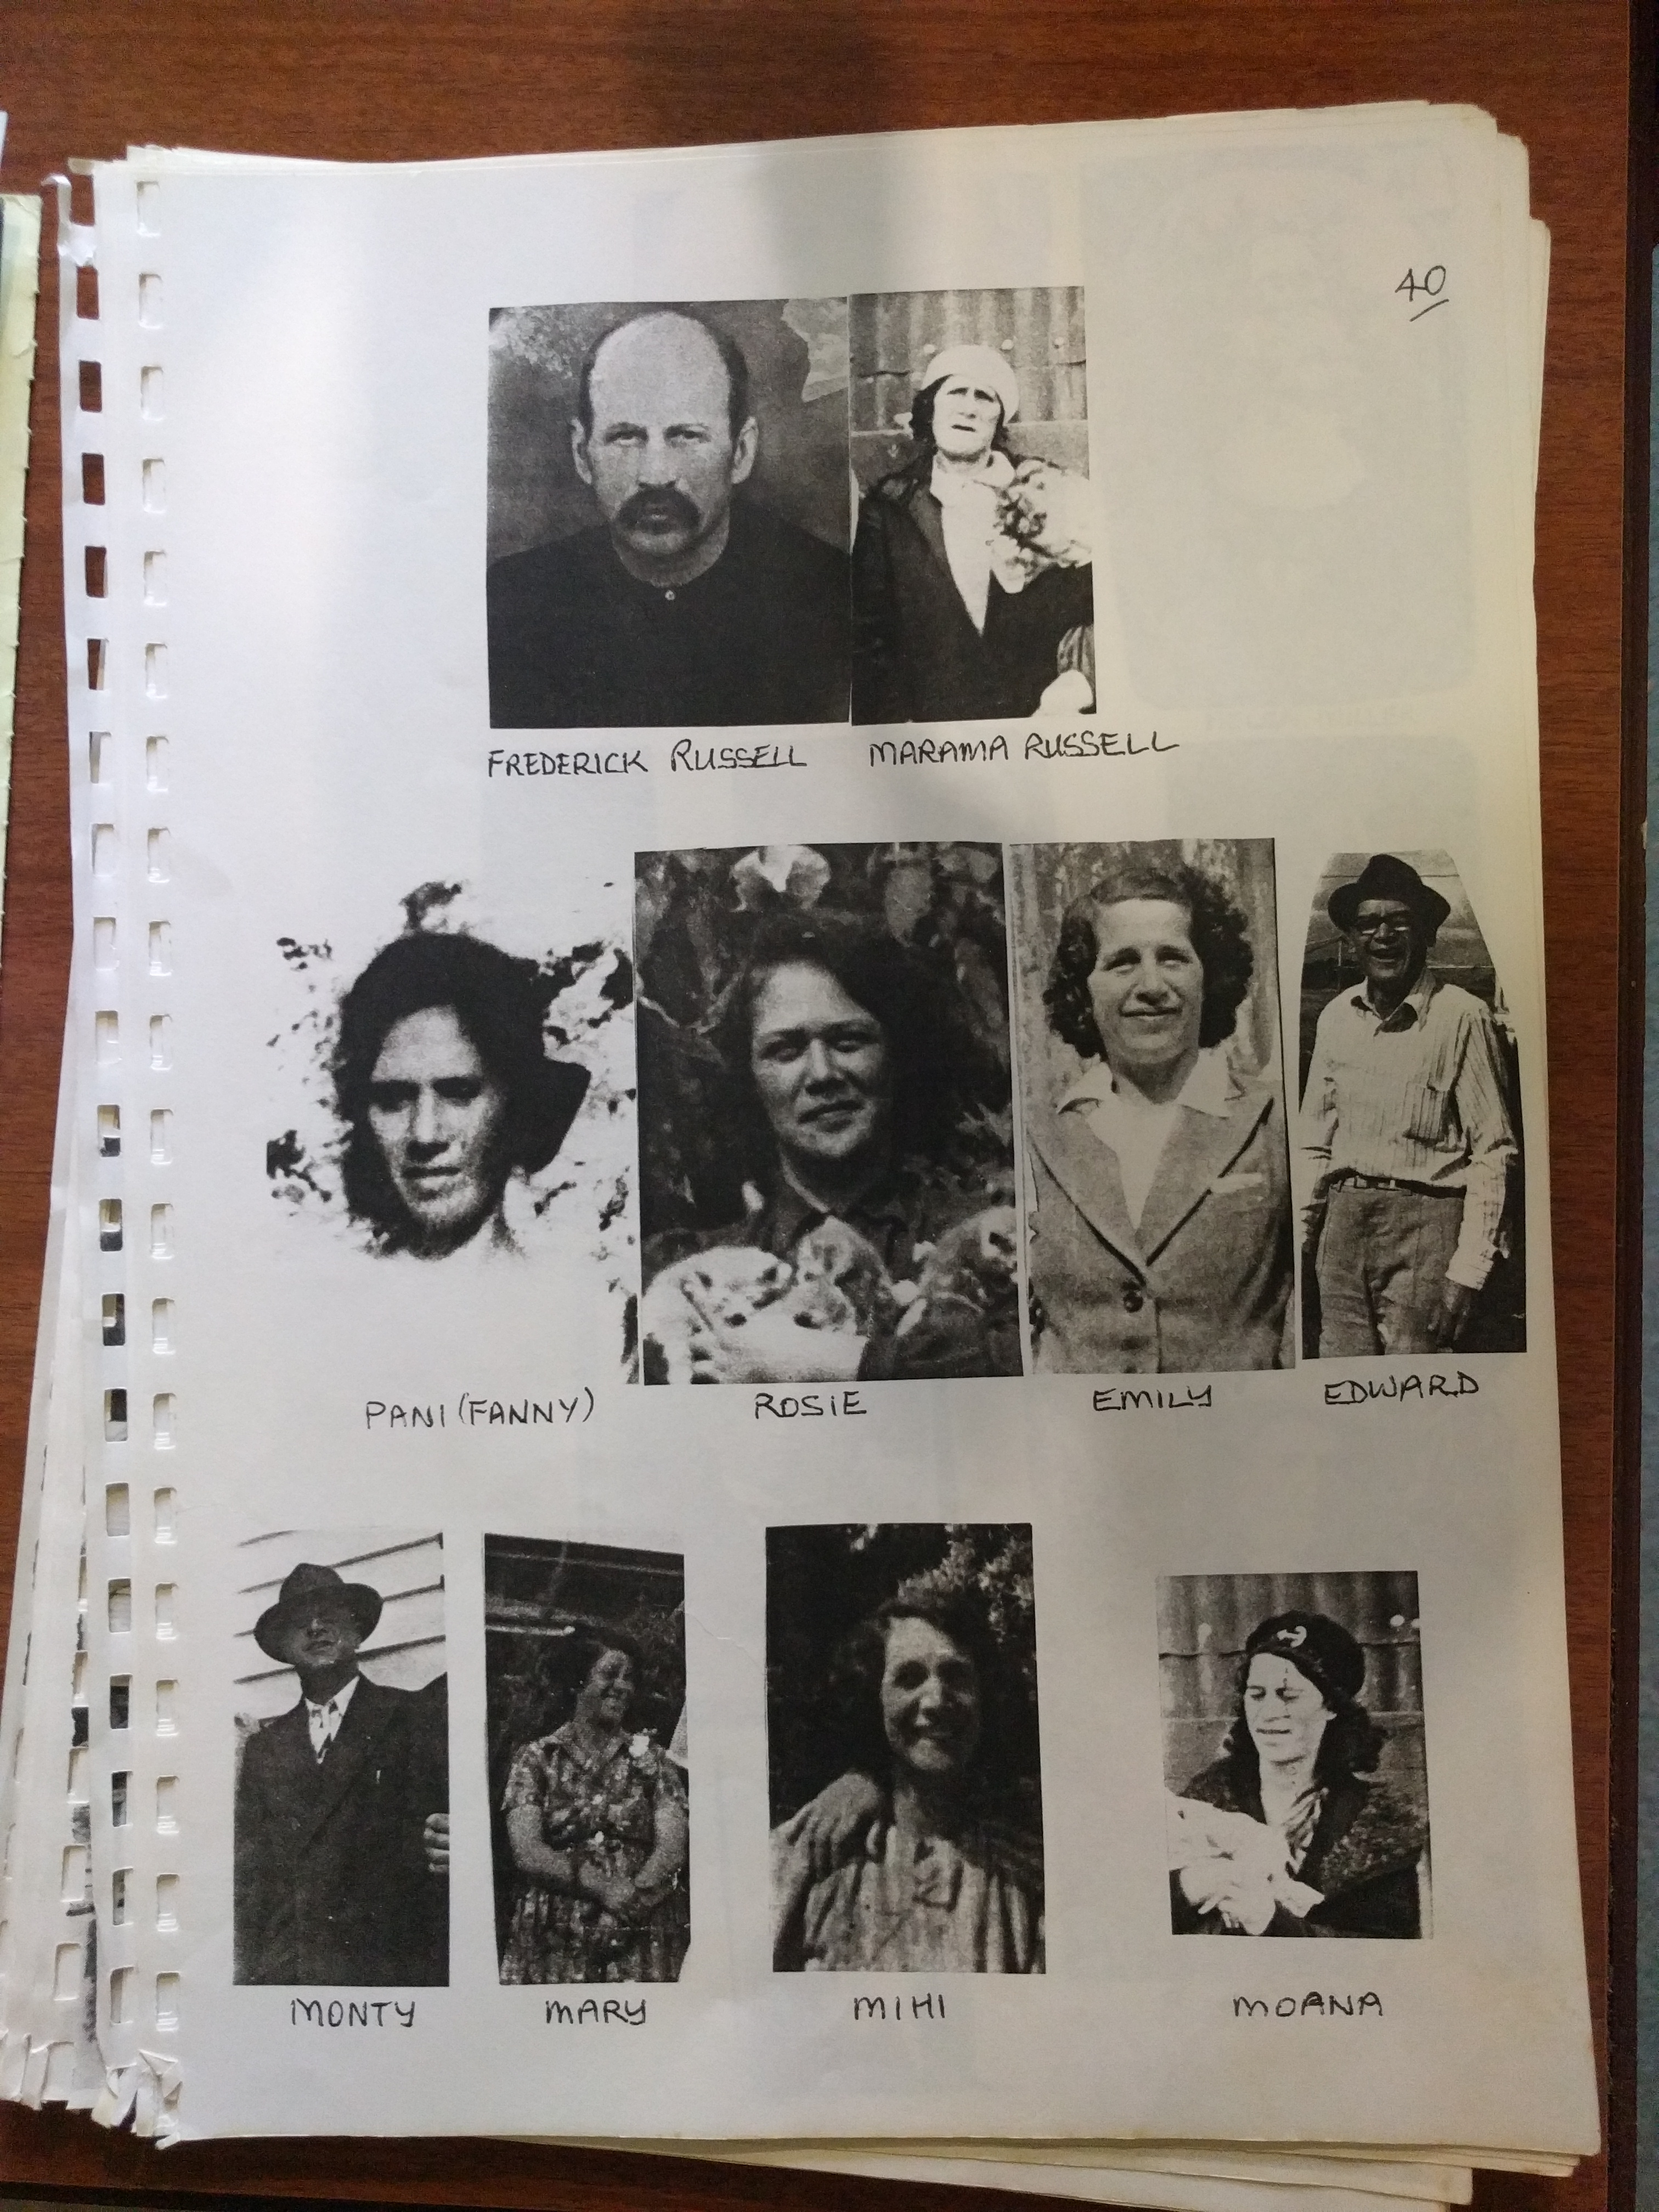 40
FREDERICK RUSSELL MARAMA RUSSELL
PANI (FANNY) ROSIE EMILY EDWARD
MONTY MARY MIHI MOANA